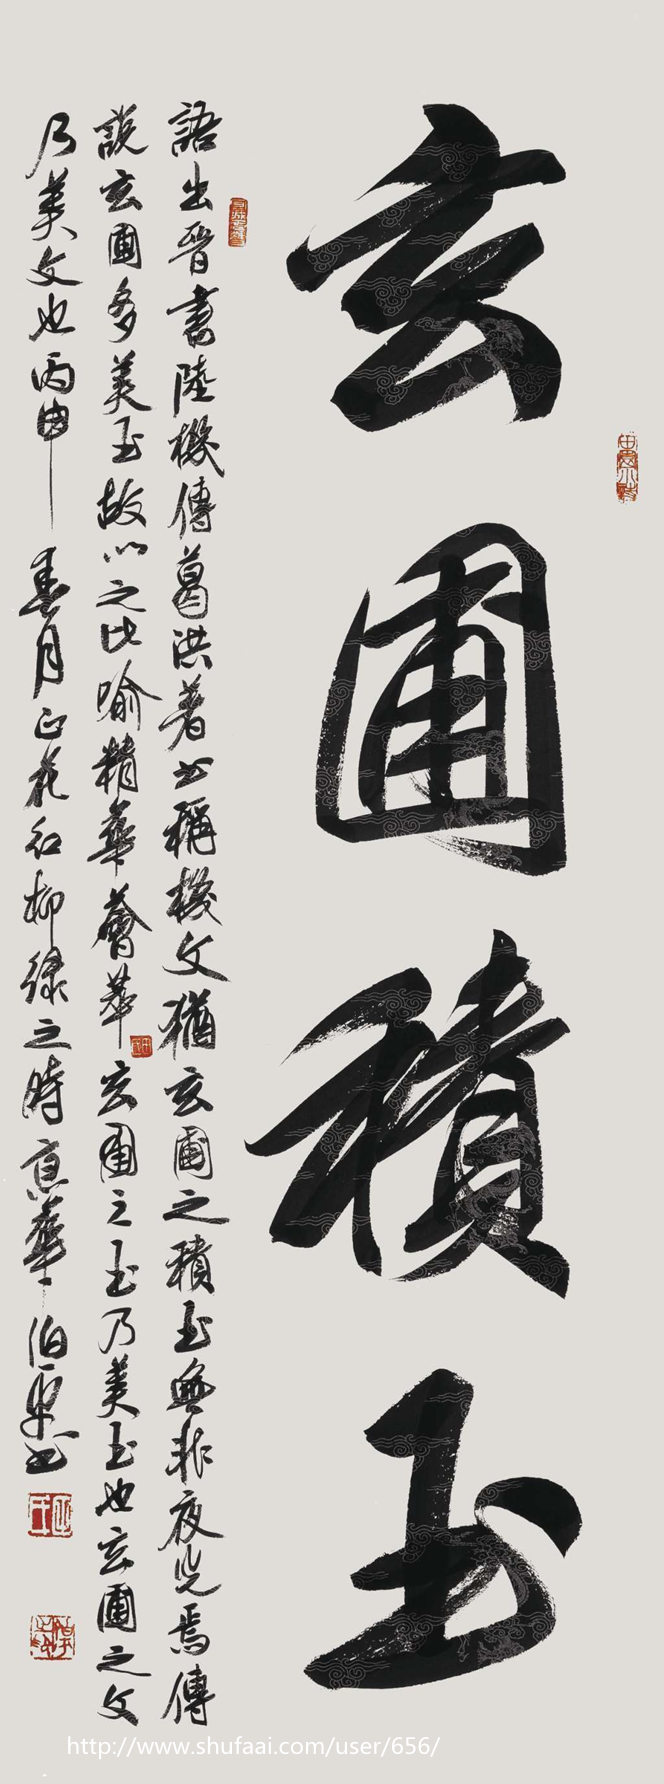 玄圃積玉
語出晉書陸機傳葛洪著書稱機文猶玄圃之積玉無非夜光焉傳
說玄圃多美玉故以之比喻精華薈萃玄圃之玉乃美玉也玄圃之文
乃美文也丙申春月正花红柳绿之時京華伯平書
http://www.shufaai.com/user/656/